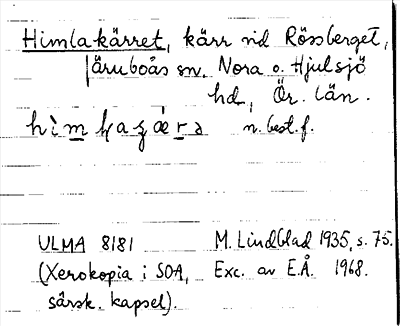 Himlakärret, kärr vid Rössberget,
Järnboås sn. Nora o. Hjulsjö
hd, Ör. län.
n. best. f.
ULMA 8181 M. Lindblad 1935, s. 75.
(Xerokopia i SOA, Exc. av E.Å. 1968.
särsk. kapsel).